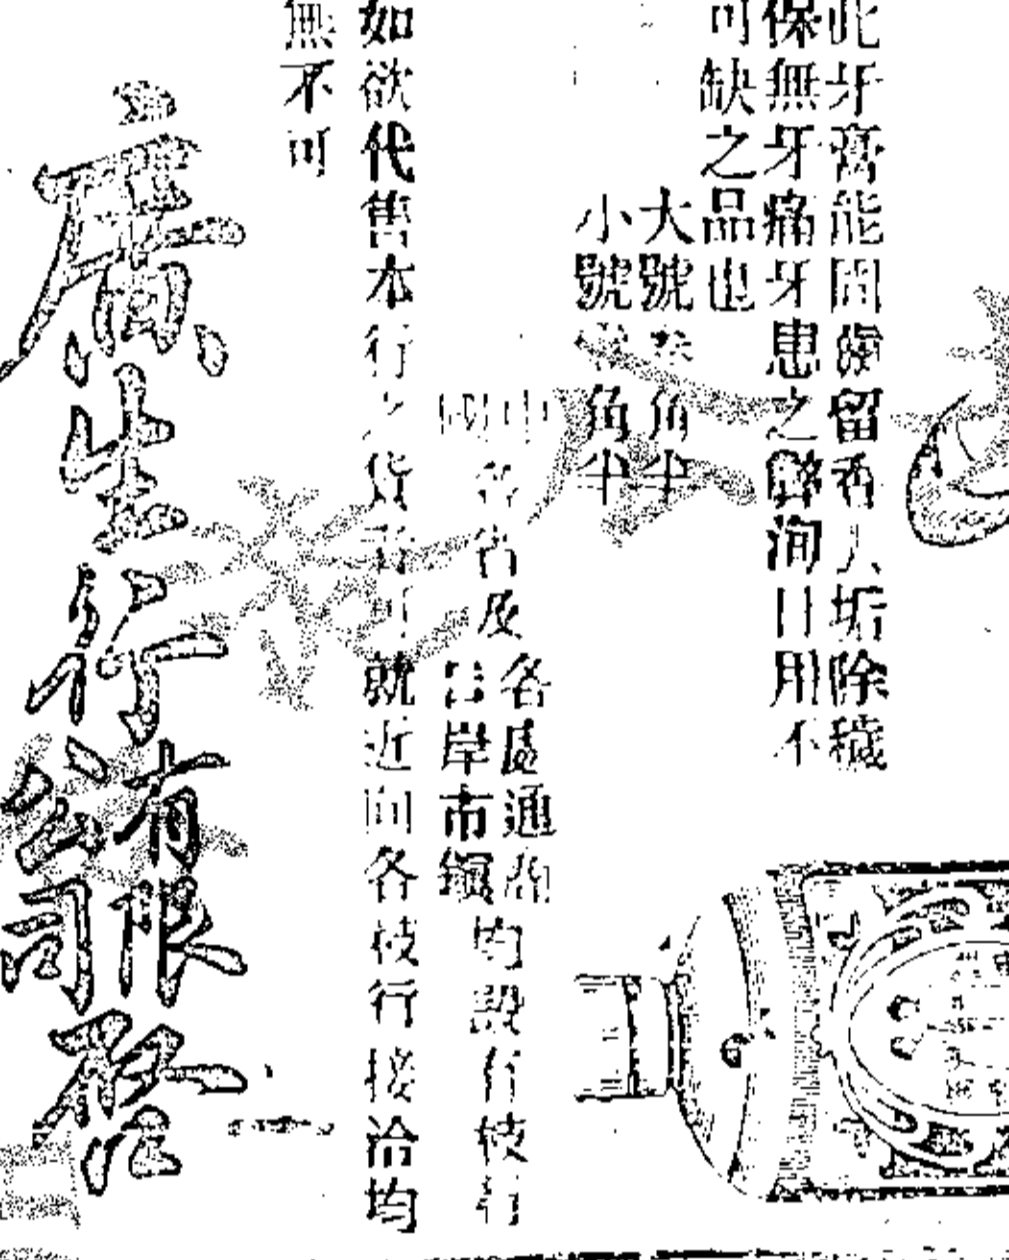 此牙膏能固齒留香去垢除穢
保無牙痛牙患之弊洵日用不
可缺之品也
大號 角半
小號 角半
中國各省及各處通商口岸市鎮均設有枝行
如欲代售本行之貨者可就近向各枝行接洽均
無不可
廣生行有限公司啓